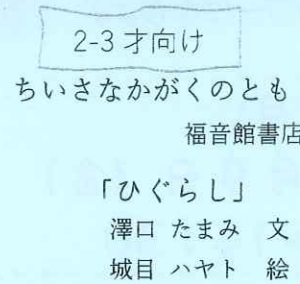 2-3才向け
ちいさなかがくのとも
福音館書店
「ひぐらし」
澤口 たまみ 文
城目 ハヤト 絵